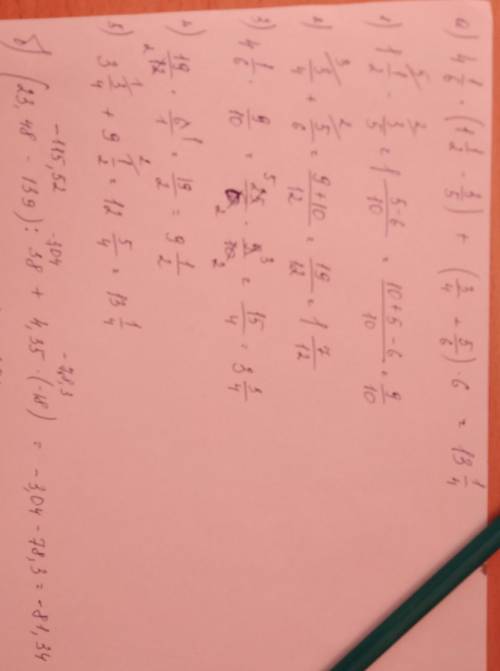 а) 4 1/6 · (1 1/2 - 3/5) + (3/4 + 5/6) · 6 = 13 1/4
1) 1 1/2 - 3/5 = 1 5-6/10 = 10+5-6/10 = 9/10
2) 3/4 + 5/6 = 9+10/12 = 19/12 = 1 7/12
3) 4 1/6 · 9/10 = 25/6 · 9/10 = 15/4 = 3 3/4
4) 19/12 · 6/1 = 19/2 = 9 1/2
5) 3 3/4 + 9 1/2 = 12 5/4 = 13 1/4
-115,52 -3,04 -78,3
б) (23,48 - 139) : 38 + 4,35 · (-18) = -3,04 - 78,3 = -81,34